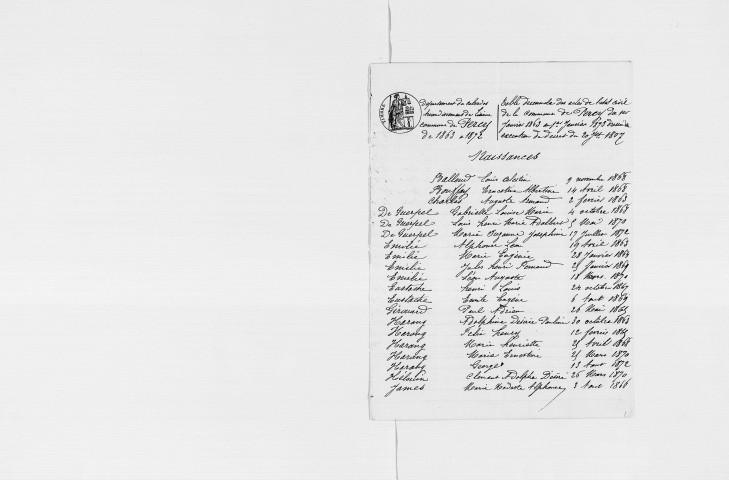 TIMBRE
Département du Calvados
arrondissement de Lisieux
commune de Percy
de 1863 à 1872
Table décennale des actes de l'état civil
de la commune de Percy du 1er
Janvier 1863 au 1er Janvier 1873 dressée en
exécution du décret du 20 Jet 1807
Naissances
Louis Célestin 9 novembre 1868
Ernestine Albertine 14 Avril 1868
Charles Auguste Armand 2 février 1863
De Guerpel Gabrielle Louise Marie 4 octobre 1868
De Guerpel Louis Henri Marie Adalbert 5 Mai 1870
De Guerpel Marie Suzanne Joséphine 17 Juillet 1872
Emilie Alphonse Leon 19 Avril 1863
Emilie Marie Eugénie 28 Janvier 1864
Emilie Jules Henri Fernand 21 Janvier 1869
Emilie Auguste 18 Mars 1870
Eustache Henri Louis 24 octobre 1867
Eustache Emile Eugène 6 Aout 1869
Girouard Paul Adrien 26 Mai 1865
Harang Adolphine Désirée Pauline 30 octobre 1863
Harang Felix Henry 12 février 1865
Harang Marie Henriette 21 Avril 1868
Harang Maria Ernestine 21 Mars 1870
Harang Georges 13 Aout 1872
Clément Adolphe Désiré 26 Mars 1870
James Marie Modeste Alphonse 2 Aout 1866